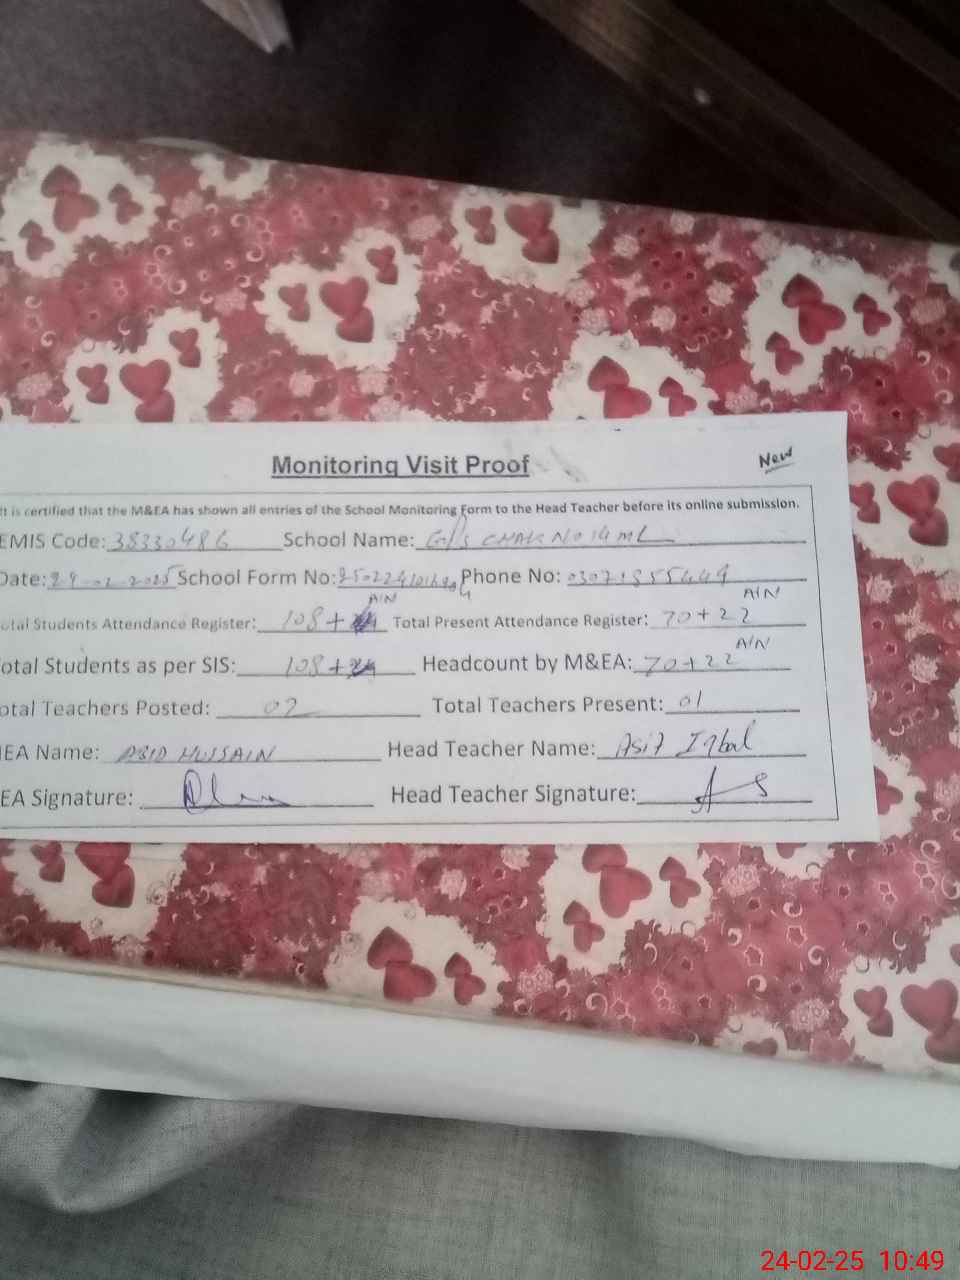 Monitoring Visit Proof
New
It is certified that the M&EA has shown all entries of the School Monitoring Form to the Head Teacher before its online submission.
EMIS Code: 38330486 School Name: G/PS CHAK NO 14 ML
Date: 24-02-2025 School Form No: Phone No: 03071855449
A/N A/N
otal Students Attendance Register: 108+ Total Present Attendance Register: 70+22
A/N
otal Students as per SIS: 108+ Headcount by M&EA: 70+22
otal Teachers Posted: 02 Total Teachers Present: 01
EA Name: ABID HUSSAIN Head Teacher Name: Asif Iqbal
EA Signature: Head Teacher Signature:
24-02-25 10:49